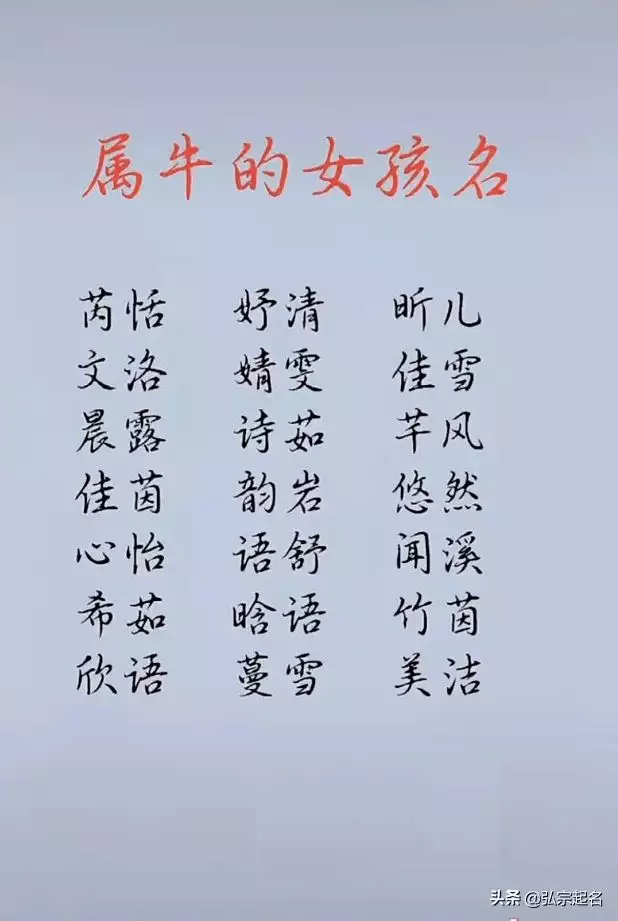 属牛的女孩名
芮恬 妤清 昕儿
文洛 婧雯 佳雪
晨露 诗茹 芊风
佳茵 韵岩 悠然
心怡 语舒 闻溪
希茹 晗语 竹茵
欣语 蔓雪 美洁
头条 @弘宗起名